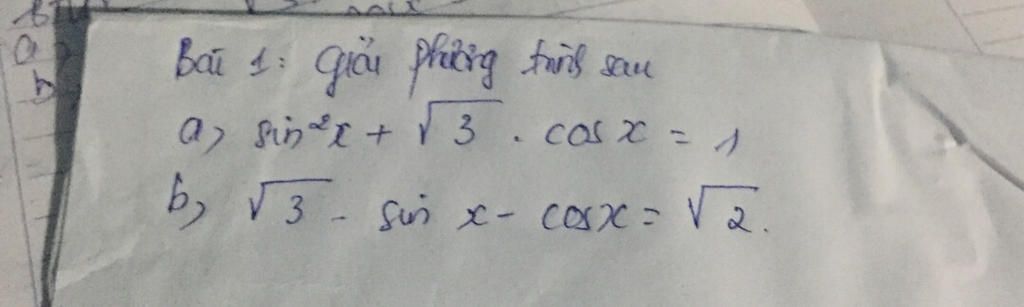 Bài 1: Giải phương trình sau
a) sin²x + √3 . cos x = 1
b) √3 - sin x - cosx = √2.
a)
b